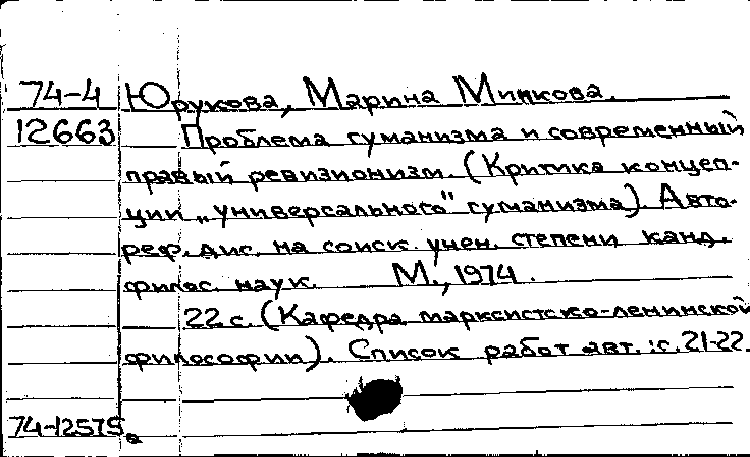 74-4 Юрукова, Марина Минкова.
12663 Проблема гуманизма и современный
правый ревизионизм. (Критика концеп-
ции „универсального" гуманизма). Авто-
реф. дис. на соиск. учен. степени канд.
филос. наук. М., 1974.
22 с. (Кафедра марксистско-ленинской
философии). Список работ авт.: с. 21-22.
74-12575а